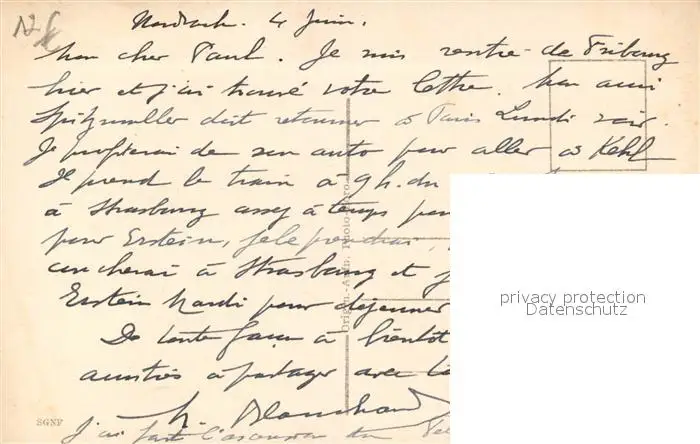 4 Juin.
Mon cher Paul. Je suis rentré de Fribourg
hier et j'ai trouvé votre lettre. Mon ami
Spitzmuller doit retourner à Paris Lundi soir.
Je profiterai de son auto pour aller à Kehl
Je prend le train à 9h. du
à Strasbourg assez à temps pour
pour Erstein, je le prendrai,
coucherai à Strasbourg et j
Erstein Mardi pour déjeuner
De toute façon à bientôt
amitiés à partager avec
Blanchard
J'ai fait l'ascension du
SGNF
Origin.-Aufn. Photo-Chro
privacy protection
Datenschutz